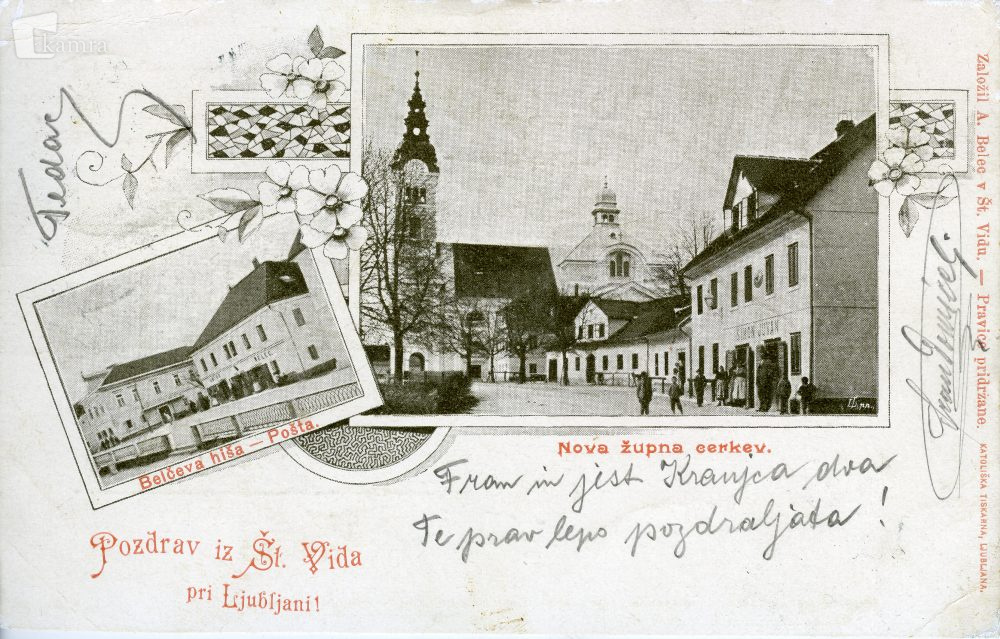 kamra
Nova župna cerkev.
BELEC
Belčeva hiša — Pošta.
Fran in jest Kranjca dva
Te prav lepo pozdraljata!
Pozdrav iz Št. Vida
pri Ljubljani!
Založil A. Belec v Št. Vidu. — Pravice pridržane. KATOLIŠKA TISKARNA, LJUBLJANA.